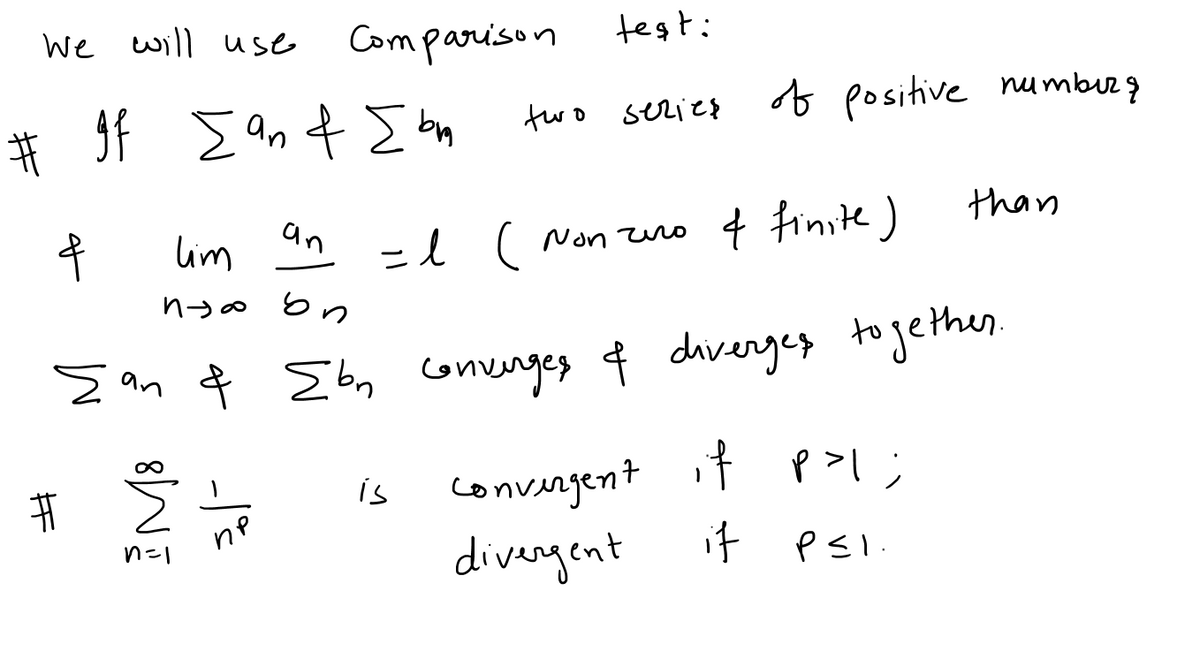 We will use Comparison test:
# If ∑ an & ∑ bn two series of positive numbers
& lim n→∞ an/bn = l (Non zero & finite) than
∑ an & ∑ bn converges & diverges together.
# ∞ ∑ n=1 1/n^p is convergent if p>1;
divergent if p≤1.